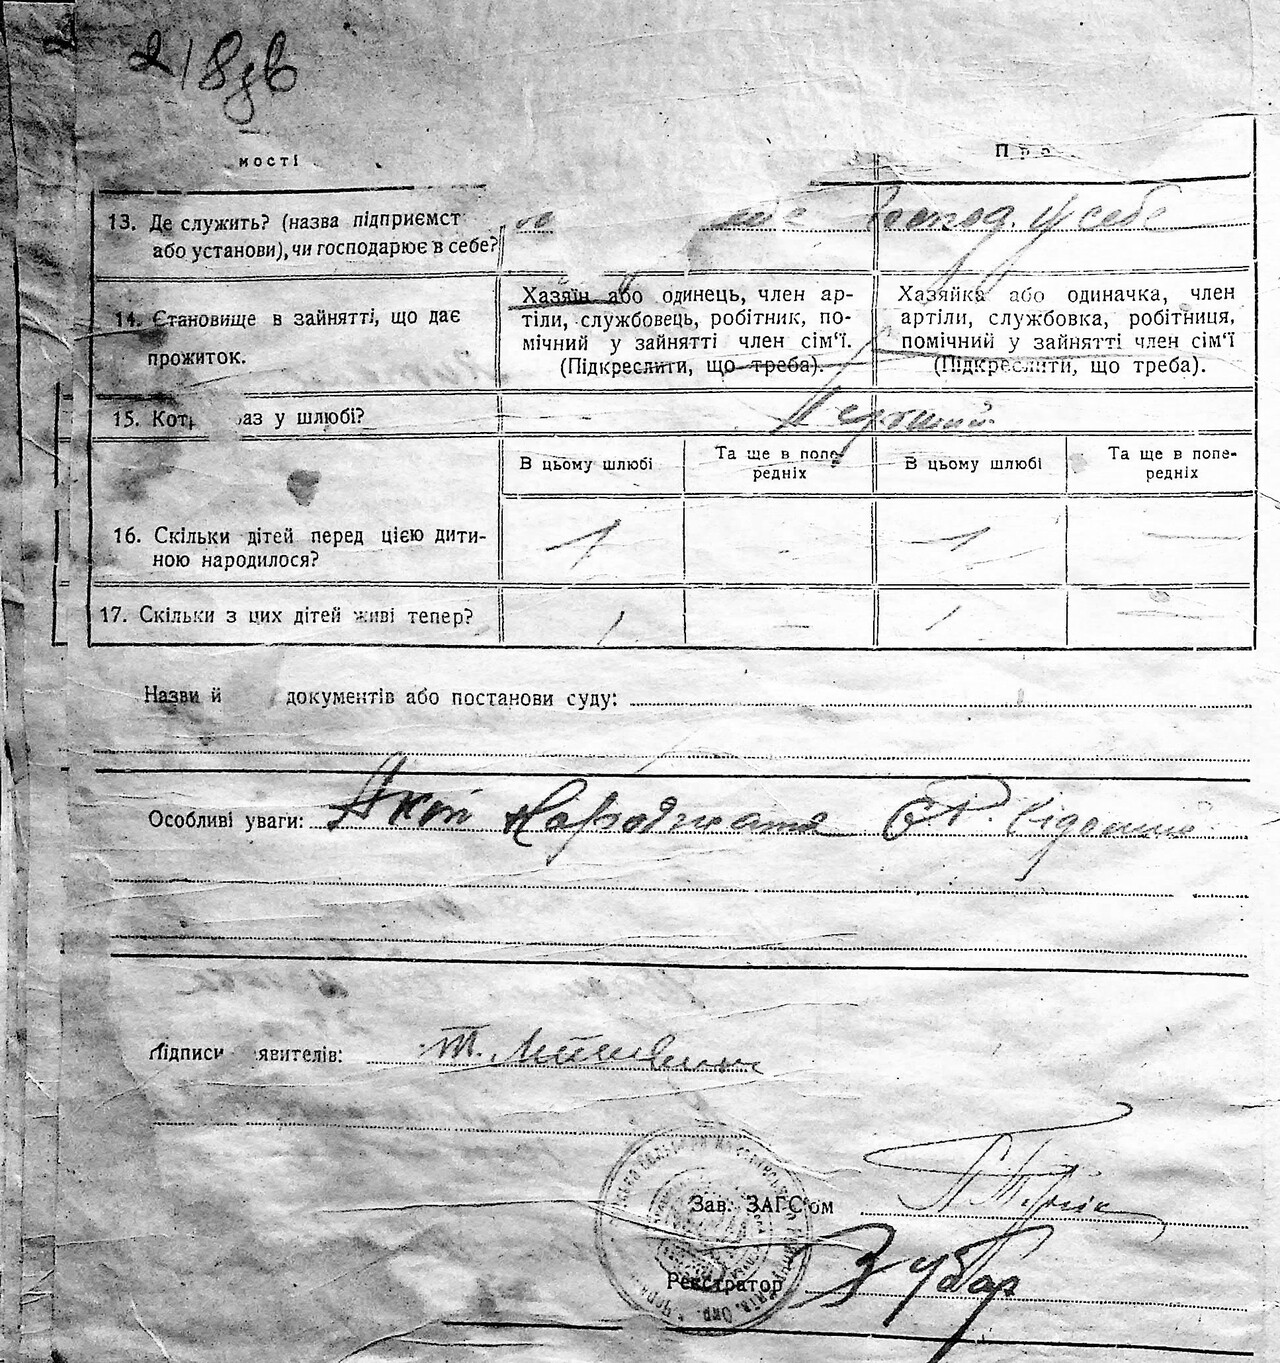 218зв
мості
Про
13. Де служить? (назва підприємст
або установи), чи господарює в себе?
Господ. у себе
14. Становище в зайнятті, що дає
прожиток.
Хазяїн або одинець, член ар-
тіли, службовець, робітник, по-
мічний у зайнятті член сім‘ї.
(Підкреслити, що треба).
Хазяйка або одиначка, член
артіли, службовка, робітниця,
помічний у зайнятті член сім‘ї
(Підкреслити, що треба).
15. Кот аз у шлюбі?
Перший
В цьому шлюбі
Та ще в попе-
редніх
В цьому шлюбі
Та ще в попе-
редніх
16. Скільки дітей перед цією дити-
ною народилося?
1 - 1 —
17. Скільки з цих дітей живі тепер?
1 - 1 —
Назви й документів або постанови суду:
Особливі уваги: Акт народження
Підписи явителів: Т.
Зав. ЗАГС‘ом
Реєстратор Зубар